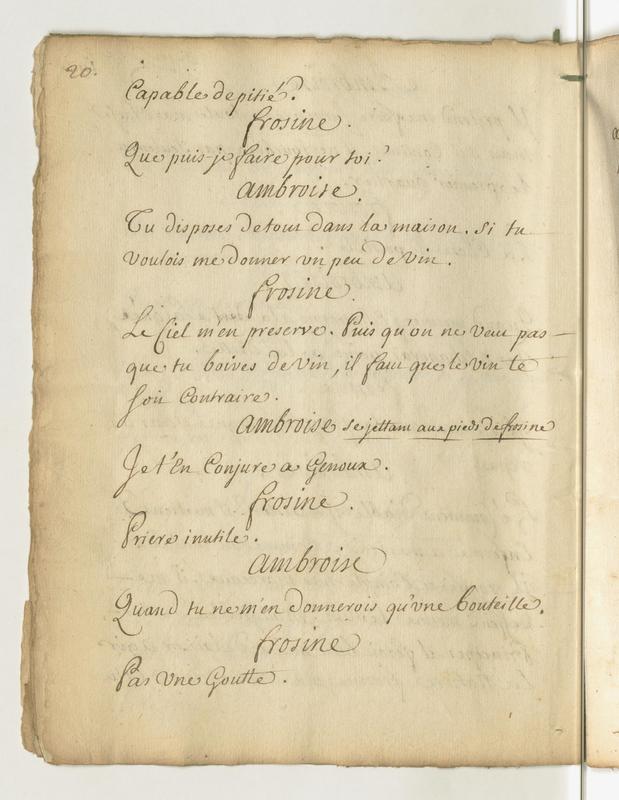 20.
Capable de pitié?
frosine.
Que puis-je faire pour toi?
ambroise.
Tu disposes de tout dans la maison. Si tu
voulois me donner vn peu de vin.
frosine.
Le Ciel m'en preserve. Puis qu'on ne veut pas
que tu boives de vin, il faut que le vin te
soit Contraire.
ambroise se jettant aux pieds de frosine
Je t'En Conjure a Genoux.
frosine.
Priere inutile.
ambroise
Quand tu ne m'en donnerois qu'vne bouteille.
frosine
Pas Vne Goutte.